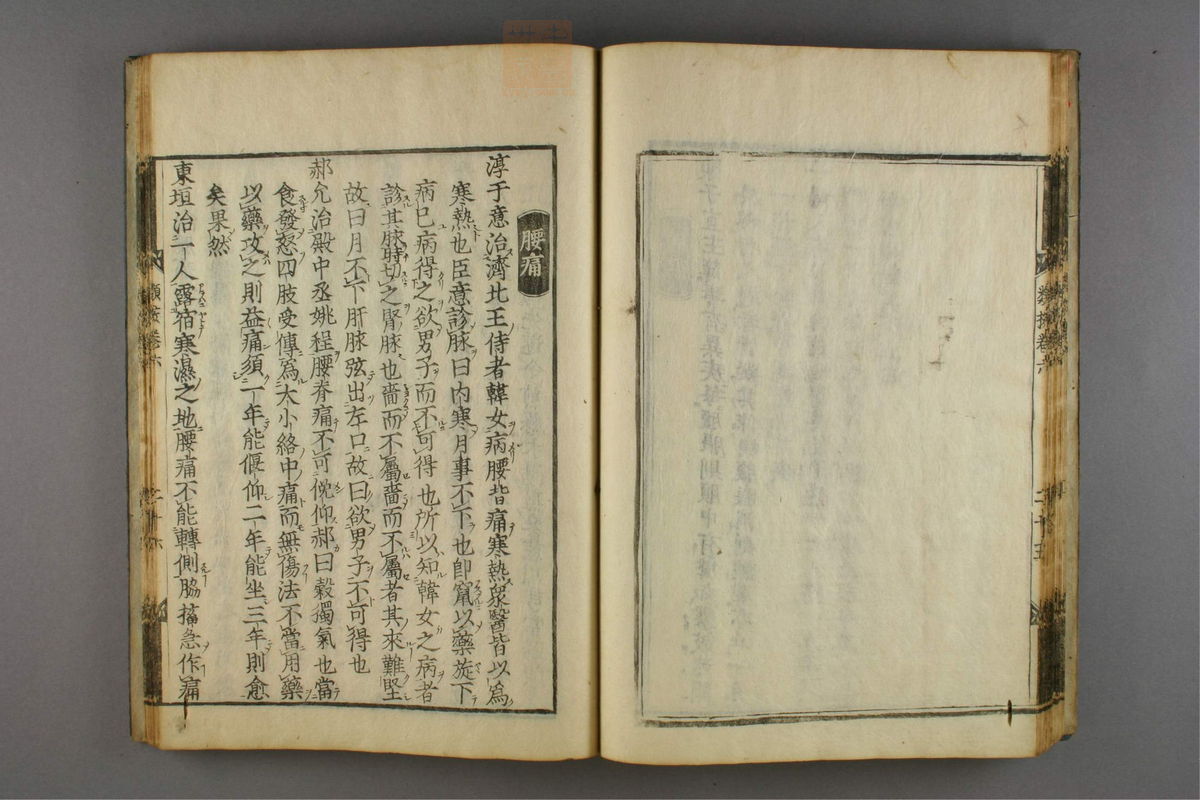 類按卷六
二十五
腰痛
淳于意治濟北王侍者韓女病腰背痛寒熱衆醫皆以為
寒熱也臣意診脉曰内寒月事不下也卽竄以藥旋下
病已病得之欲男子而不可得也所以知韓女之病者
診其脉時切之腎脉也嗇而不屬嗇而不屬者其來難堅
故曰月不下肝脉弦出左口故曰欲男子不可得也
郝允治殿中丞姚程腰脊痛不可俛仰郝曰穀獨氣也當
食發怒四肢受傳為大小絡中痛而無傷法不當用藥
以藥攻之則益痛須一年能偃仰二年能坐三年則愈
矣果然
東垣治一人露宿寒濕之地腰痛不能轉側脇搐急作痛
類按卷六
二十六